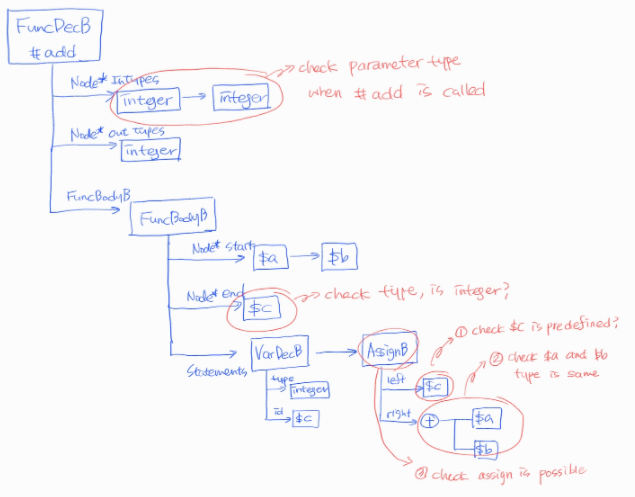 FuncDecB
#add
Node* Intypes
integer
integer
check parameter type
when #add is called
Node* out types
integer
FuncBodyB
FuncBodyB
Node* start
$a
$b
Node* end
$c
check type, is integer?
Statements
VarDecB
AssignB
① check $c is predefined?
② check $a and $b
type is same
type
integer
id
$c
left
$c
right
+
$a
$b
③ check assign is possible